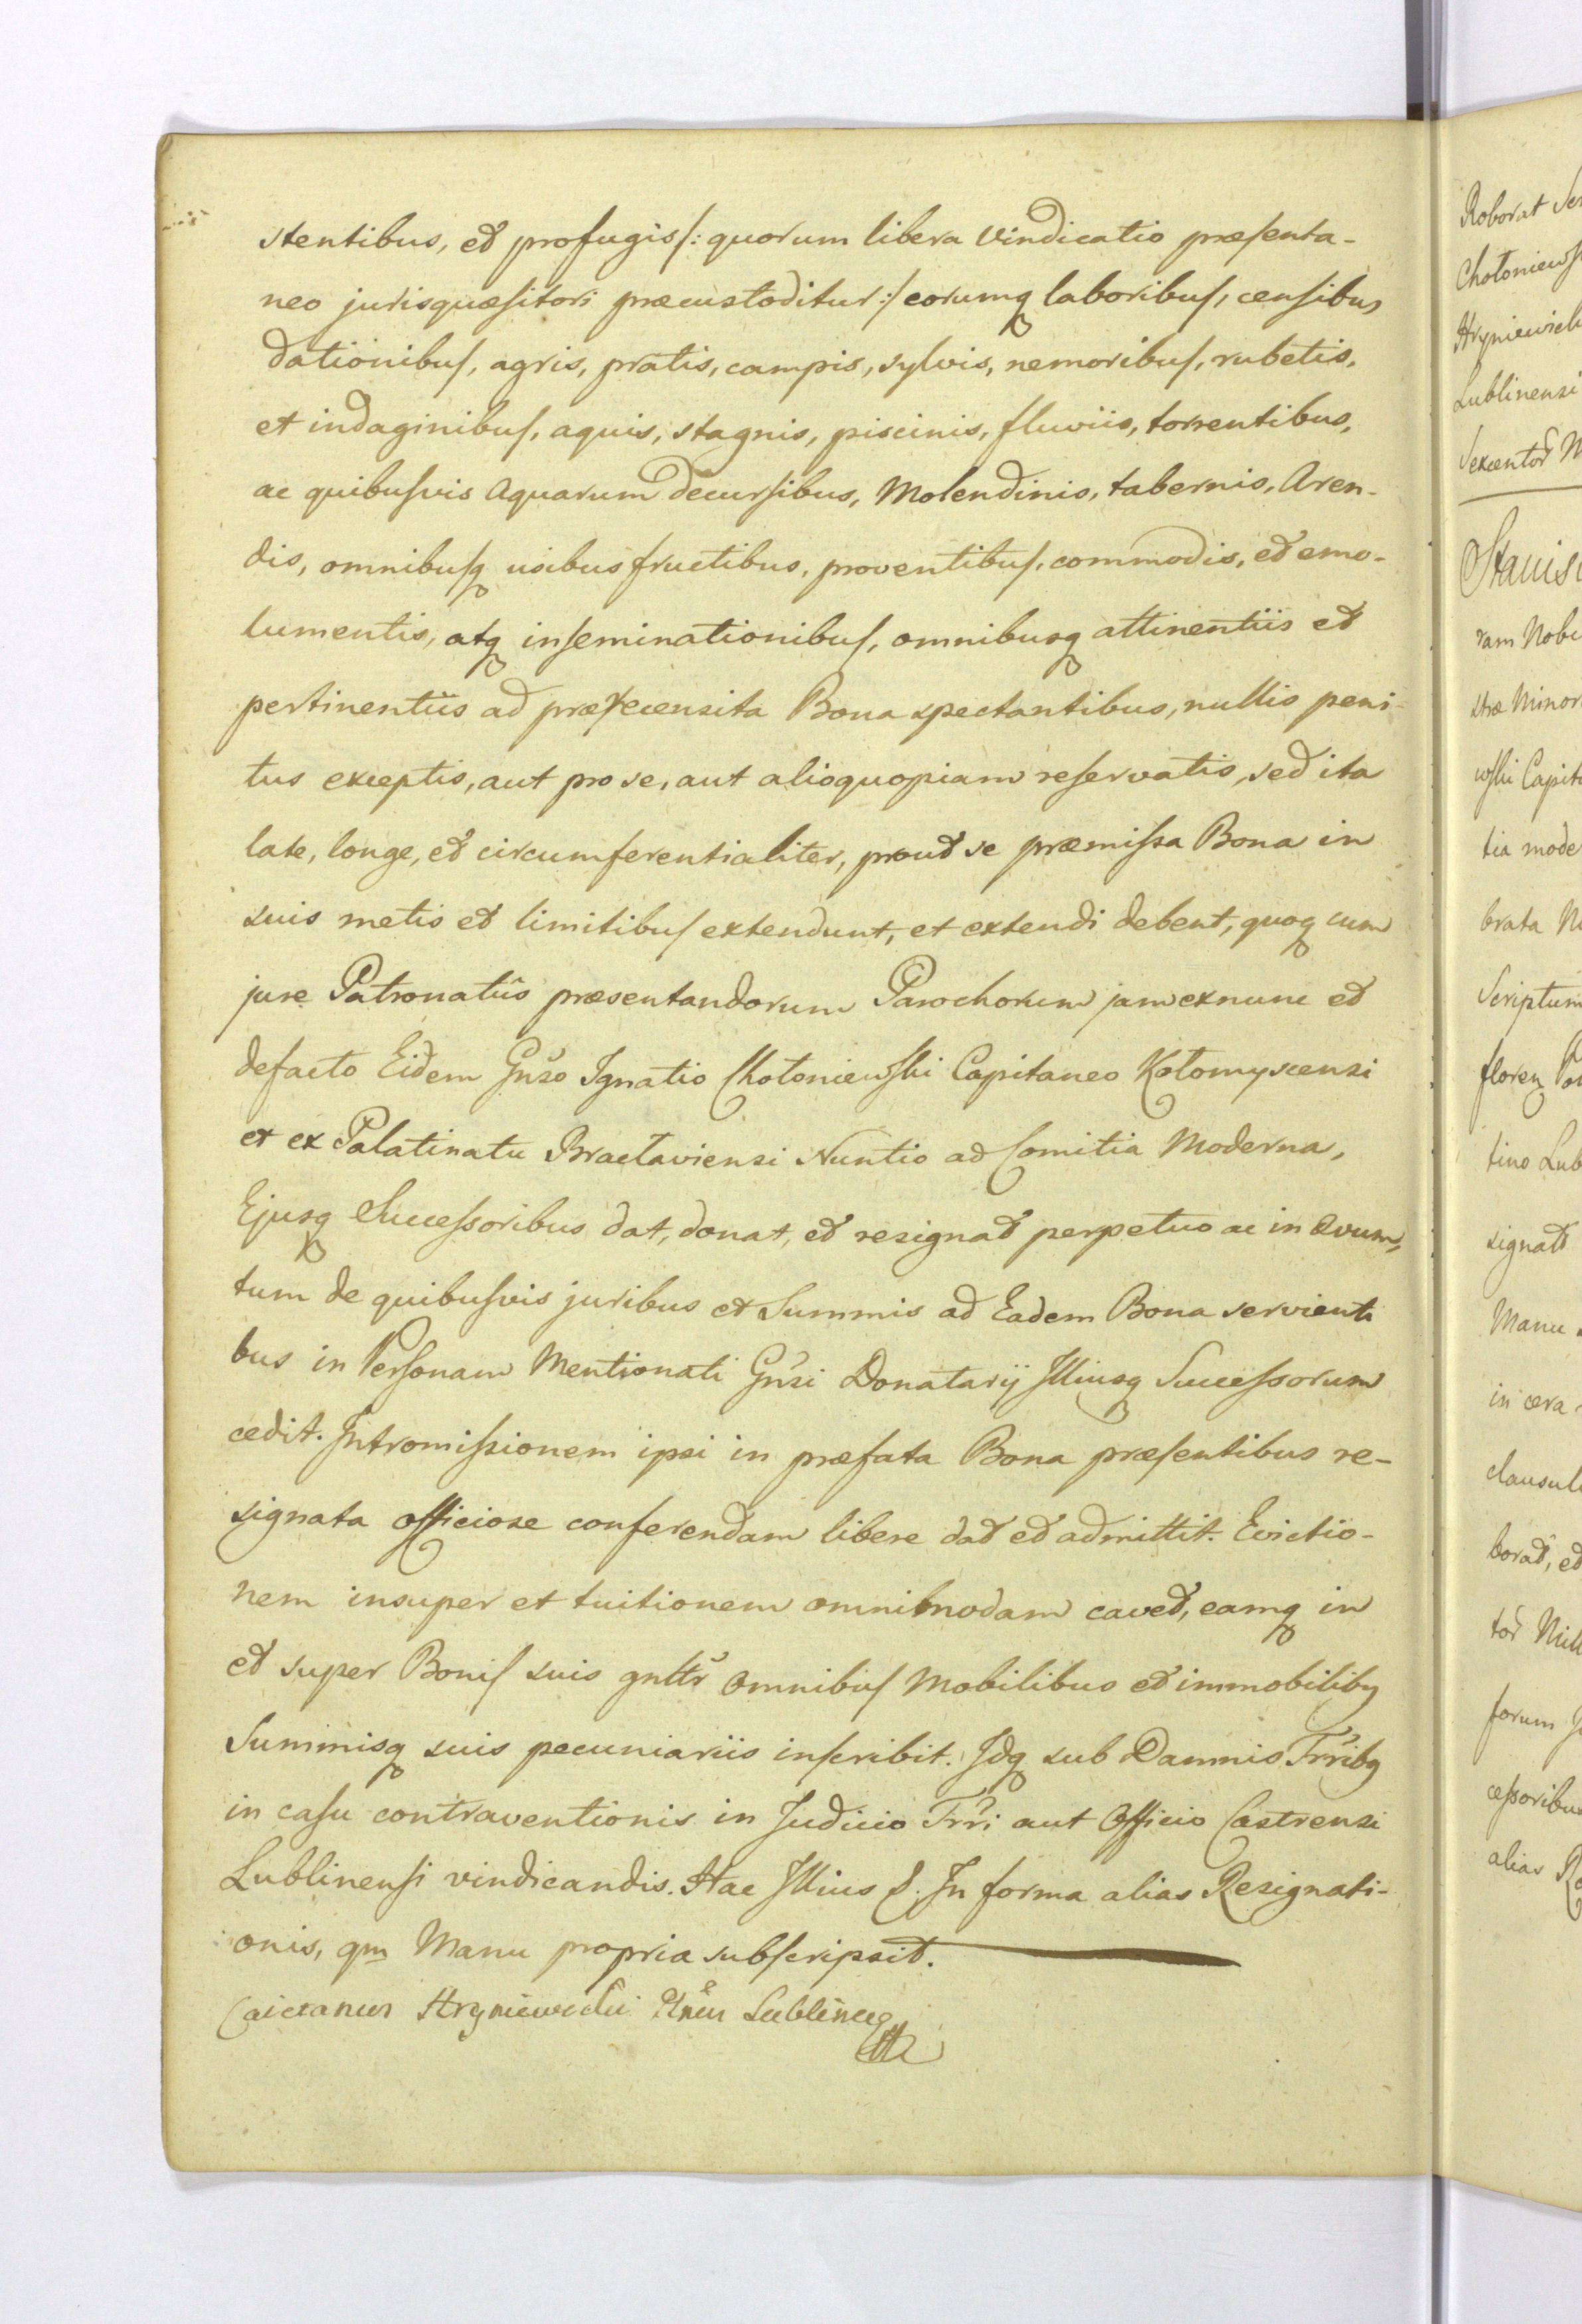 stentibus, et profugis /: quorum libera vindicatio præsenta-
neo jurisquæsitori præcustoditur :/ eorumq laboribus, censibus
dationibus, agris, pratis, campis, sylvis, nemoribus, rubetis,
et indaginibus, aquis, stagnis, piscinis, fluviis, torrentibus,
ac quibusvis Aquarum decursibus, Molendinis, tabernis, Aren-
dis, omnibusq usibus fructibus, proventibus, commodis, et emo-
lumentis, atq inseminationibus, omnibusq attinentiis et
pertinentiis ad prærecensita Bona spectantibus, nullis peni-
tus exceptis, aut pro se, aut alioquopiam reservatis, sed ita
late, longe, et circumferentialiter, prout se præmissa Bona in
suis metis et limitibus extendunt, et extendi debent, quoq cum
jure Patronatûs præsentandorum Parochorum jam exnunc et
defacto Eidem Gñso Ignatio Chołoniewski Capitaneo Kołomyscensi
et ex Palatinatu Bractaviensi Nuntio ad Comitia Moderna,
Ejusq Successoribus dat, donat, et resignat perpetuo ac in ævum,
tum de quibusvis juribus et Summis ad Eadem Bona servienti
bus in Personam Mentionati Gñsi Donatarij Illiusq Successorum
cedit. Intromissionem ipsi in præfata Bona præsentibus re-
signata officiose conferendam libere dat et admittit. Evictio-
nem insuper et tuitionem omnimodam cavet, eamq in
et super Bonis suis gnltr omnibus Mobilibus et immobilibq
Summisq suis pecuniariis inscribit. Idq sub Damnis Trribq
in casu contraventionis in Judicio Trri aut Officio Castrensi
Lublinensi vindicandis. Hac Illius S. In forma alias Resignati-
onis, qm Manu propria subscripsit.
Caietanus Hryniewiecki Lublineñ
Roborat
Chołoniewsk
Hryniewieck
Lublinensi
Sexcentor M
Stanisl
ram Nobi
stræ Minor
wski Capit
tia mode
brata
Scriptum
floren Pol
tino Lub
signatt
Manu
in cera
clausul
borat, et
tor Mill
forum
cessoribus
alias